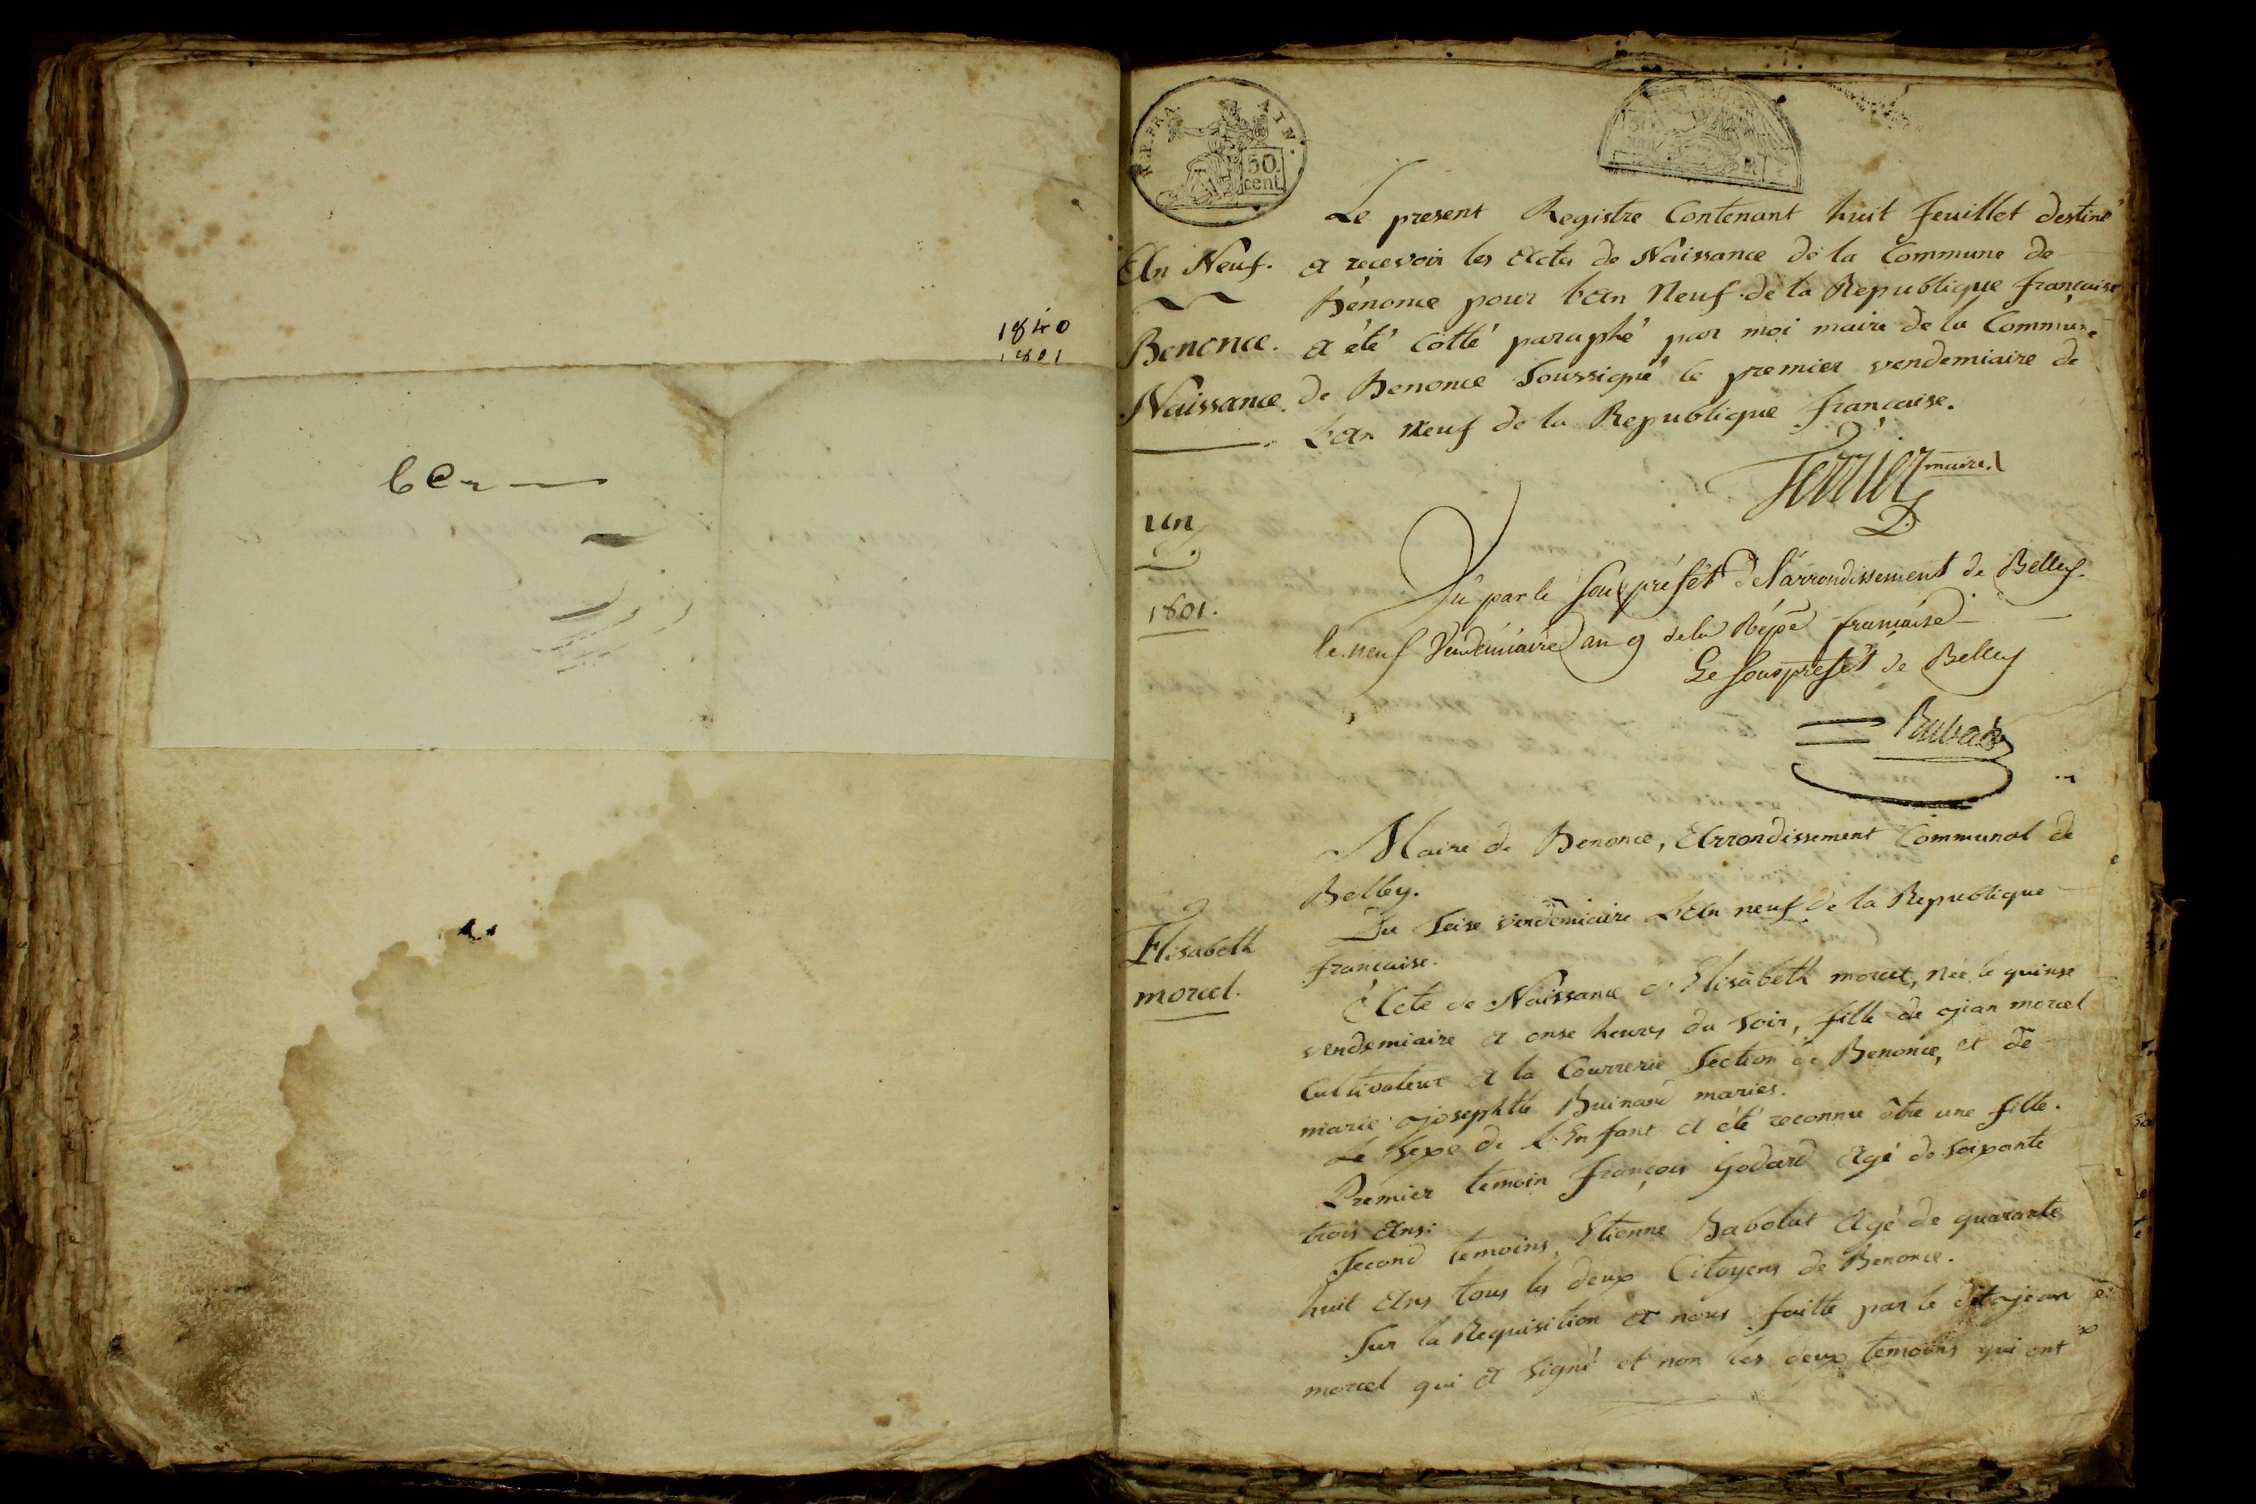 1840
1801
R.P. FRA
50
cent.
An Neuf.
Benonce.
Naissance.
un
1801.
Le present Registre Contenant huit feuillet destiné
a recevoir les Actes de Naissance de la Commune de
Bénonce pour l'an Neuf de la Republique française
a été cotté paraphé par moi maire de la Commune
de Benonce Soussigné le premier vendemiaire de
L'an neuf de la Republique française.
Ferrier maire.
Vu par le Sous préfet de l'arrondissement de Belley
le neuf Vendémiaire an 9 de la Répe française
Le Sousprefet de Belley
Maire de Benonce, Arrondissement Communal de
Belley.
Du Seise vendemiaire L'An neuf de la Republique
française.
Elisabeth
morcel.
Acte de Naissance d'Elisabeth morcel, née le quinse
vendemiaire a onse heures du soir, fille de jean morcel
Cultivateur a la Courrerie Section de Benonce, et de
marie josephtte Buinand mariés.
Le Sexe de L'Enfant a été reconnu être une fille.
Premier temoin françois Godard Agé de soixante
trois Ans.
Second temoins, Etienne Babolat Agé de quarante
huit Ans tous les deux Citoyens de Benonce.
Sur la Requisition a nous faitte par le dit jean
morcel qui a signé et non les deux temoins qui ont